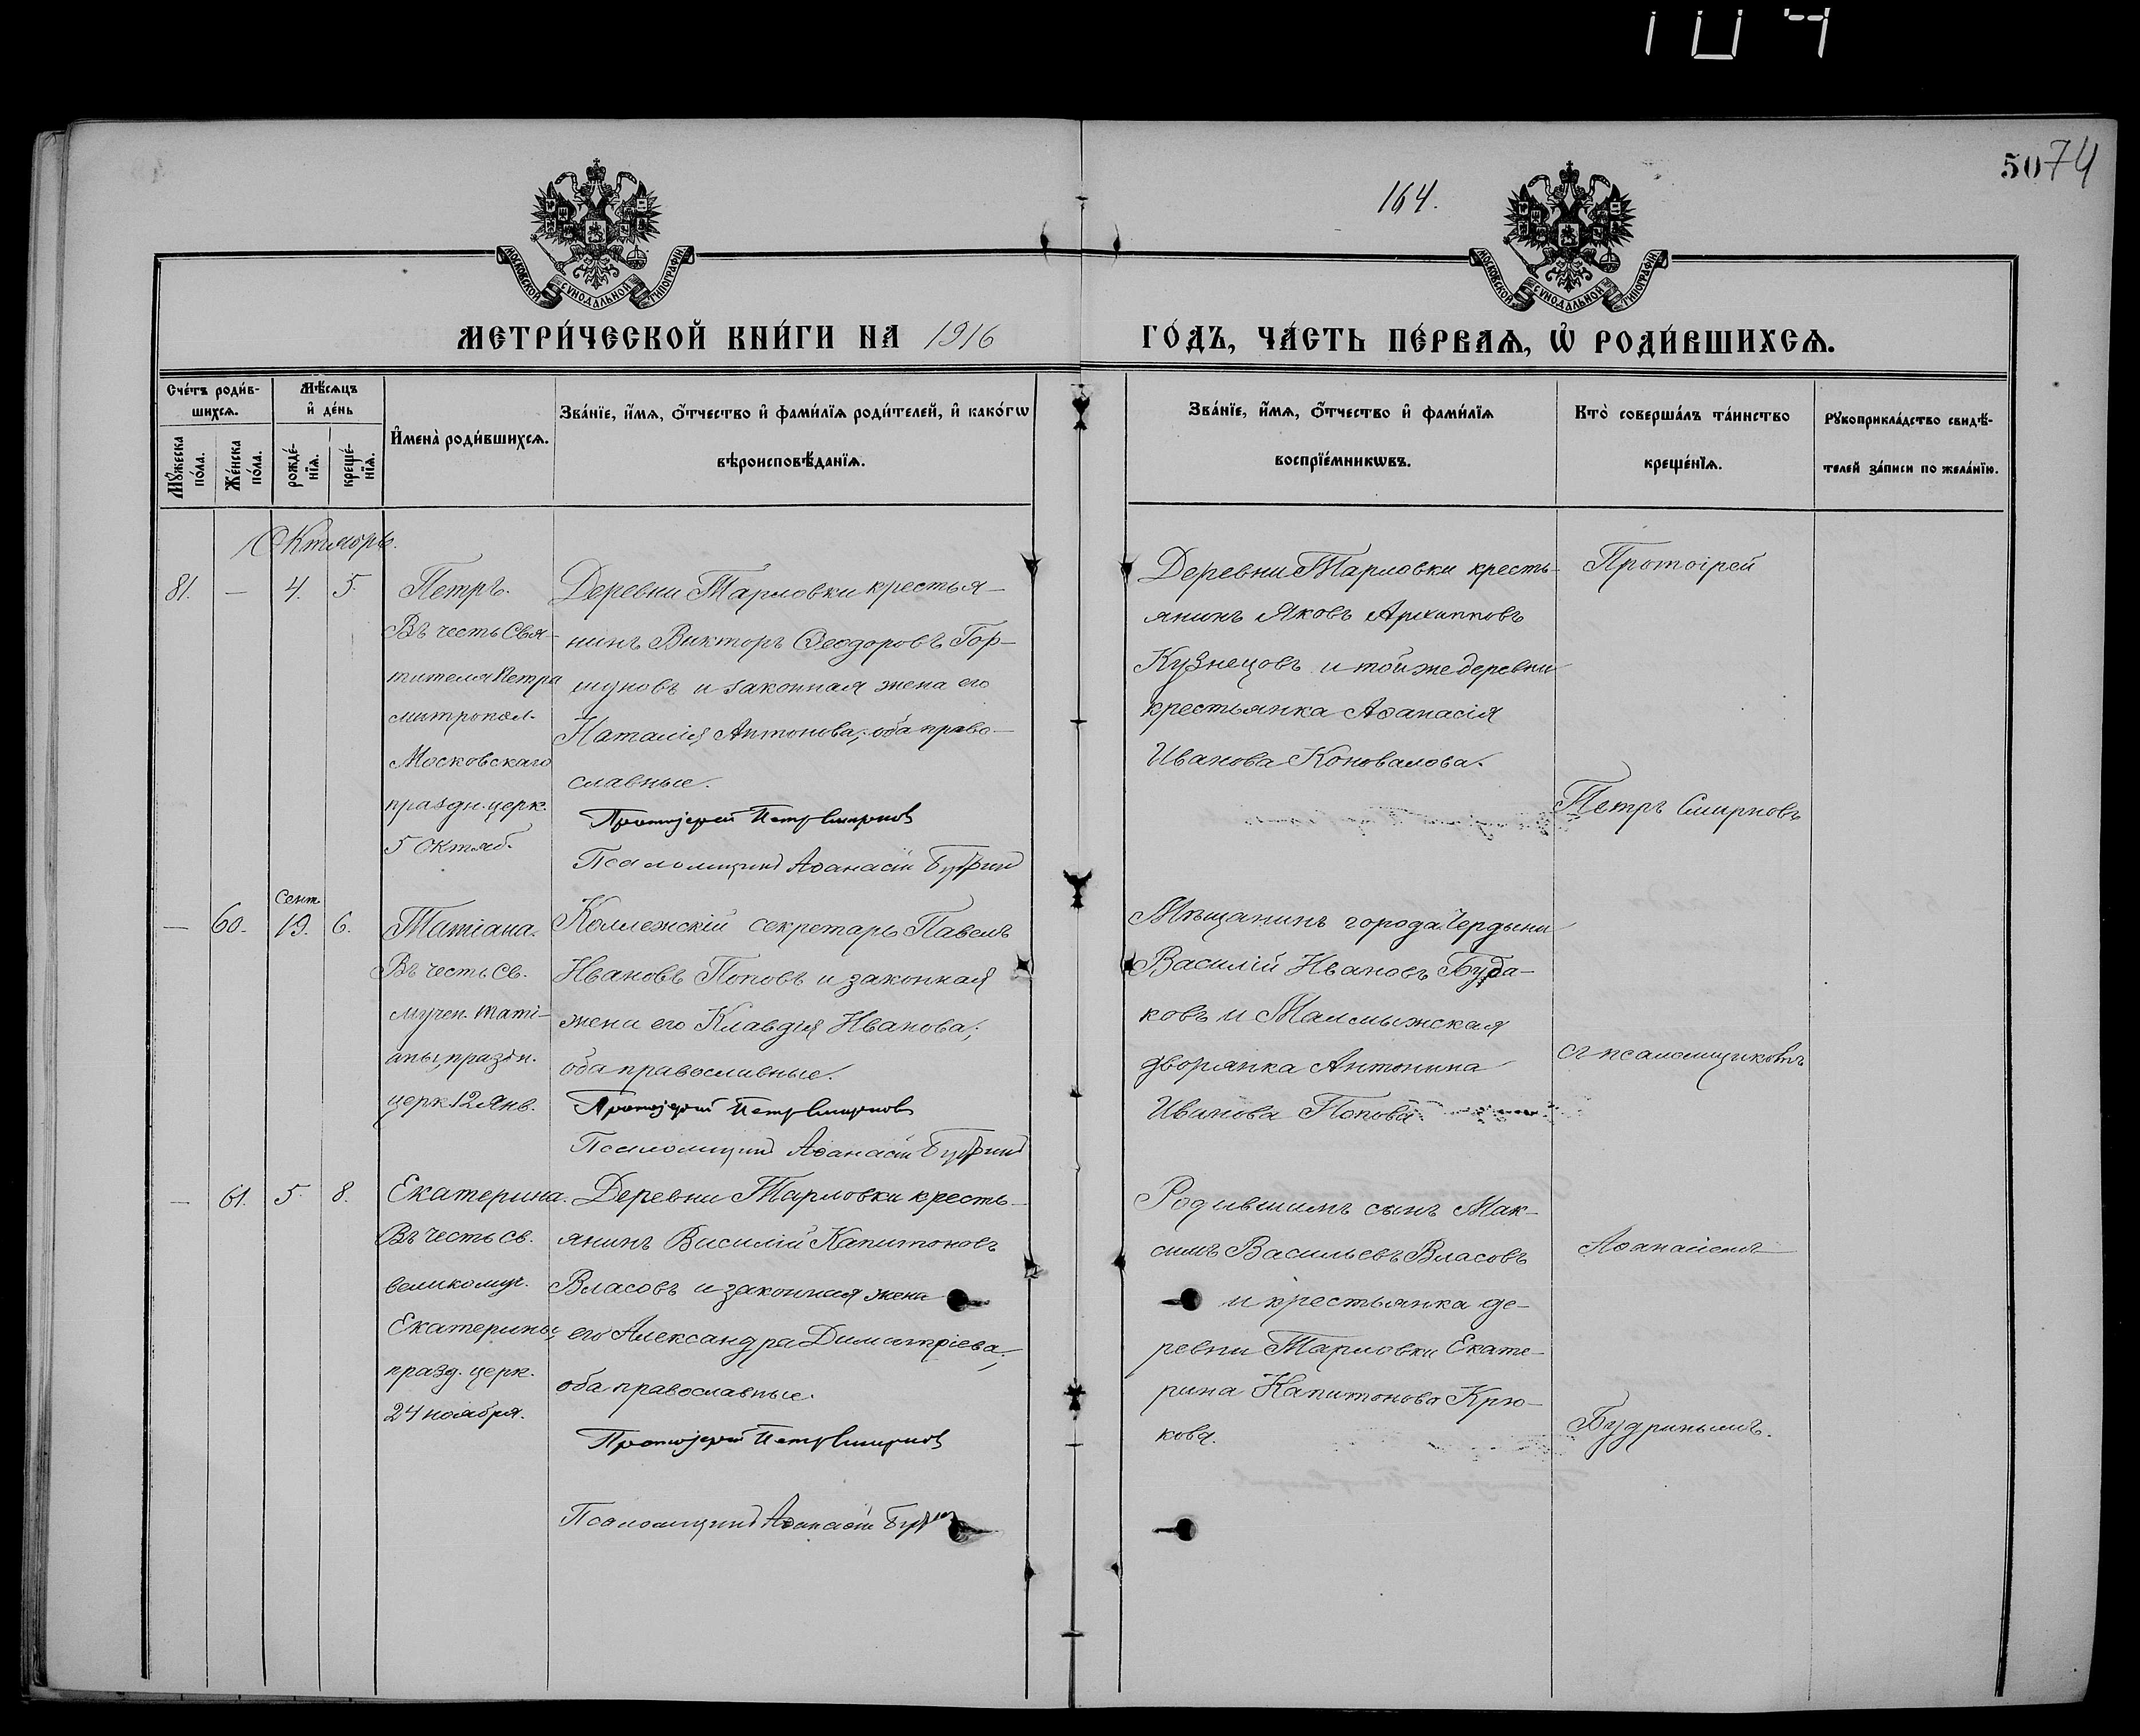 104
5074
164.
МОСКОВСКОЙ СѴНОДАЛЬНОЙ ТИПОГРАФІИ.
МОСКОВСКОЙ СѴНОДАЛЬНОЙ ТИПОГРАФІИ.
МЕТРИ́ЧЕСКОЙ КНИ́ГИ НА 1916
ГО́ДЪ, ЧА́СТЬ ПЕ́РВАѦ, Ѡ҆ РОДИ́ВШИХСѦ.
Сче́тъ роди́в-
шихсѧ.
Мꙋ́жеска по́ла.
Же́нска по́ла.
Мѣ́сѧцъ
и҆ де́нь
рожде́-
нїѧ.
креще́-
нїѧ.
И҆мена̀ роди́вшихсѧ.
Зва́нїе, и҆́мѧ, ѻ҆́тчество и҆ фами́лїѧ роди́телей, и҆ како́гѡ
вѣроисповѣ́данїѧ.
Зва́нїе, и҆́мѧ, ѻ҆́тчество и҆ фами́лїѧ
воспрїе́мникѡвъ.
Кто̀ соверша́лъ та́инство
креще́нїѧ.
Рꙋкоприкла́дство свидѣ́-
телей за́писи по жела́нїю.
Октябрь.
81. — 4. 5.
Петръ.
Въ честь Свя-
тителя Петра
митропол.
Московскаго
праздн. церк.
5 Октяб.
Деревни Тарловки крестья-
нинъ Викторъ Ѳеодоровъ Гор-
шуновъ и законная жена его
Наталія Антонова; оба право-
славные.
Протоіерей Петръ Смирновъ
Псаломщикъ Аѳанасій Будринъ
Деревни Тарловки кресть-
янинъ Яковъ Архипповъ
Кузнецовъ и той же деревни
крестьянка Аѳанасія
Иванова Коновалова.
Протоірей
Петръ Смирновъ
— 60. Сент. 19. 6.
Татіана.
Въ честь Св.
мучен. Таті-
аны, праздн.
церк. 12 Янв.
Коллежскій секретарь Павелъ
Ивановъ Поповъ и законная
жена его Клавдія Иванова;
оба православные.
Протоіерей Петръ Смирновъ
Псаломщикъ Аѳанасій Будринъ
Мѣщанинъ города Чердыни
Василій Ивановъ Буда-
ковъ и Малмыжская
дворянка Антонина
Иванова Попова.
съ псаломщикомъ
— 61. 5. 8.
Екатерина.
Въ честь Св.
великомуч.
Екатерины,
празд. церк.
24 ноября.
Деревни Тарловки кресть-
янинъ Василій Капитоновъ
Власовъ и законная жена
его Александра Димитріева;
оба православные.
Протоіерей Петръ Смирновъ
Псаломщикъ Аѳанасій Будринъ
Родившимъ сынъ Мак-
симъ Васильевъ Власовъ
и крестьянка де-
ревни Тарловки Екате-
рина Капитонова Крю-
кова.
Аѳанасіемъ
Будринымъ.